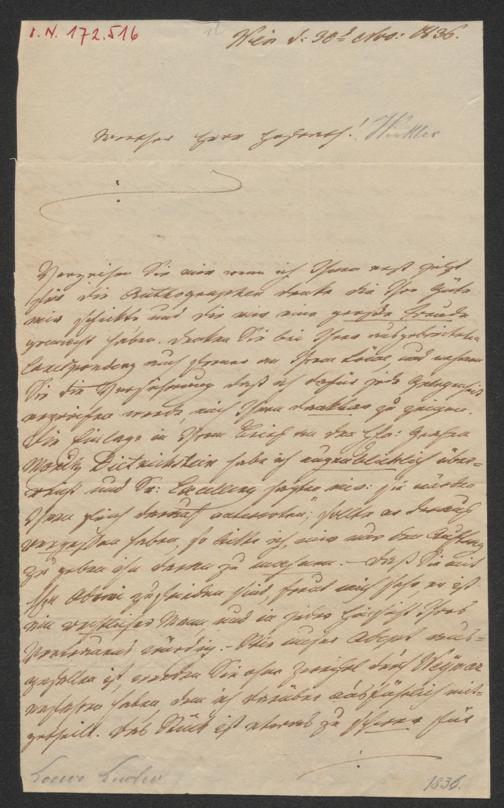 I.N. 172.516
Wien d: 30t Nov: 1836.
Werther Herr Hofrath! Winkler
Verzeihen Sie mir wenn ich Ihnen erst jetzt
für die Authographen danke die Ihre Güte
mir schickte und die mir eine große Freude
gemacht haben. Denken Sie bei Ihrer ausgebreiteten
Correspondenz auch ferner an Ihren Löwe und nehmen
Sie die Versicherung daß ich dafür jede Gelegenheit
ergreifen werde, mich Ihnen dankbar zu zeigen.
Die Einlage in Ihrem Brief an des Ehr: Grafen
Moritz Dietrichstein habe ich augenblicklich über-
reicht und Sr: Excellenz sagten mir: sie würden
Ihnen gleich darauf antworten; sollte er daraus
vergessen haben, so bitte ich, mir nur den Auftrag
zu geben ihn daran zu mahnen. – Daß Sie mit
zufrieden sind, freut mich sehr, er ist
ein Mann und in jeder Hinsicht Ihres
Vertrauens würdig. – Wie unser aus-
gefallen ist, werden Sie ohne Zweifel durch
erfahren haben dem ich darüber ausführlich mit-
getheilt. Das Stück ist etwas zu für
Loewe Ludw
1836.